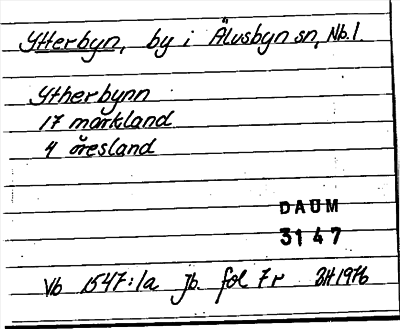 Ytterbyn, by i Älvsbyn sn, Nb.l.
Ytherbynn
17 markland
4 öresland
DAUM
3147
Vb 1547:1a Jb. fol 7r BH 1976